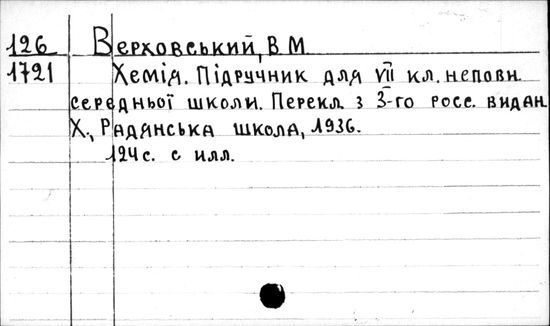 126 Верховський, В М
1721 Хемія. Підручник для VII кл. неповн.
середньої школи. Перекл. з 3-го росс. видан.
Х., Радянська школа, 1936.
124 с. с илл.